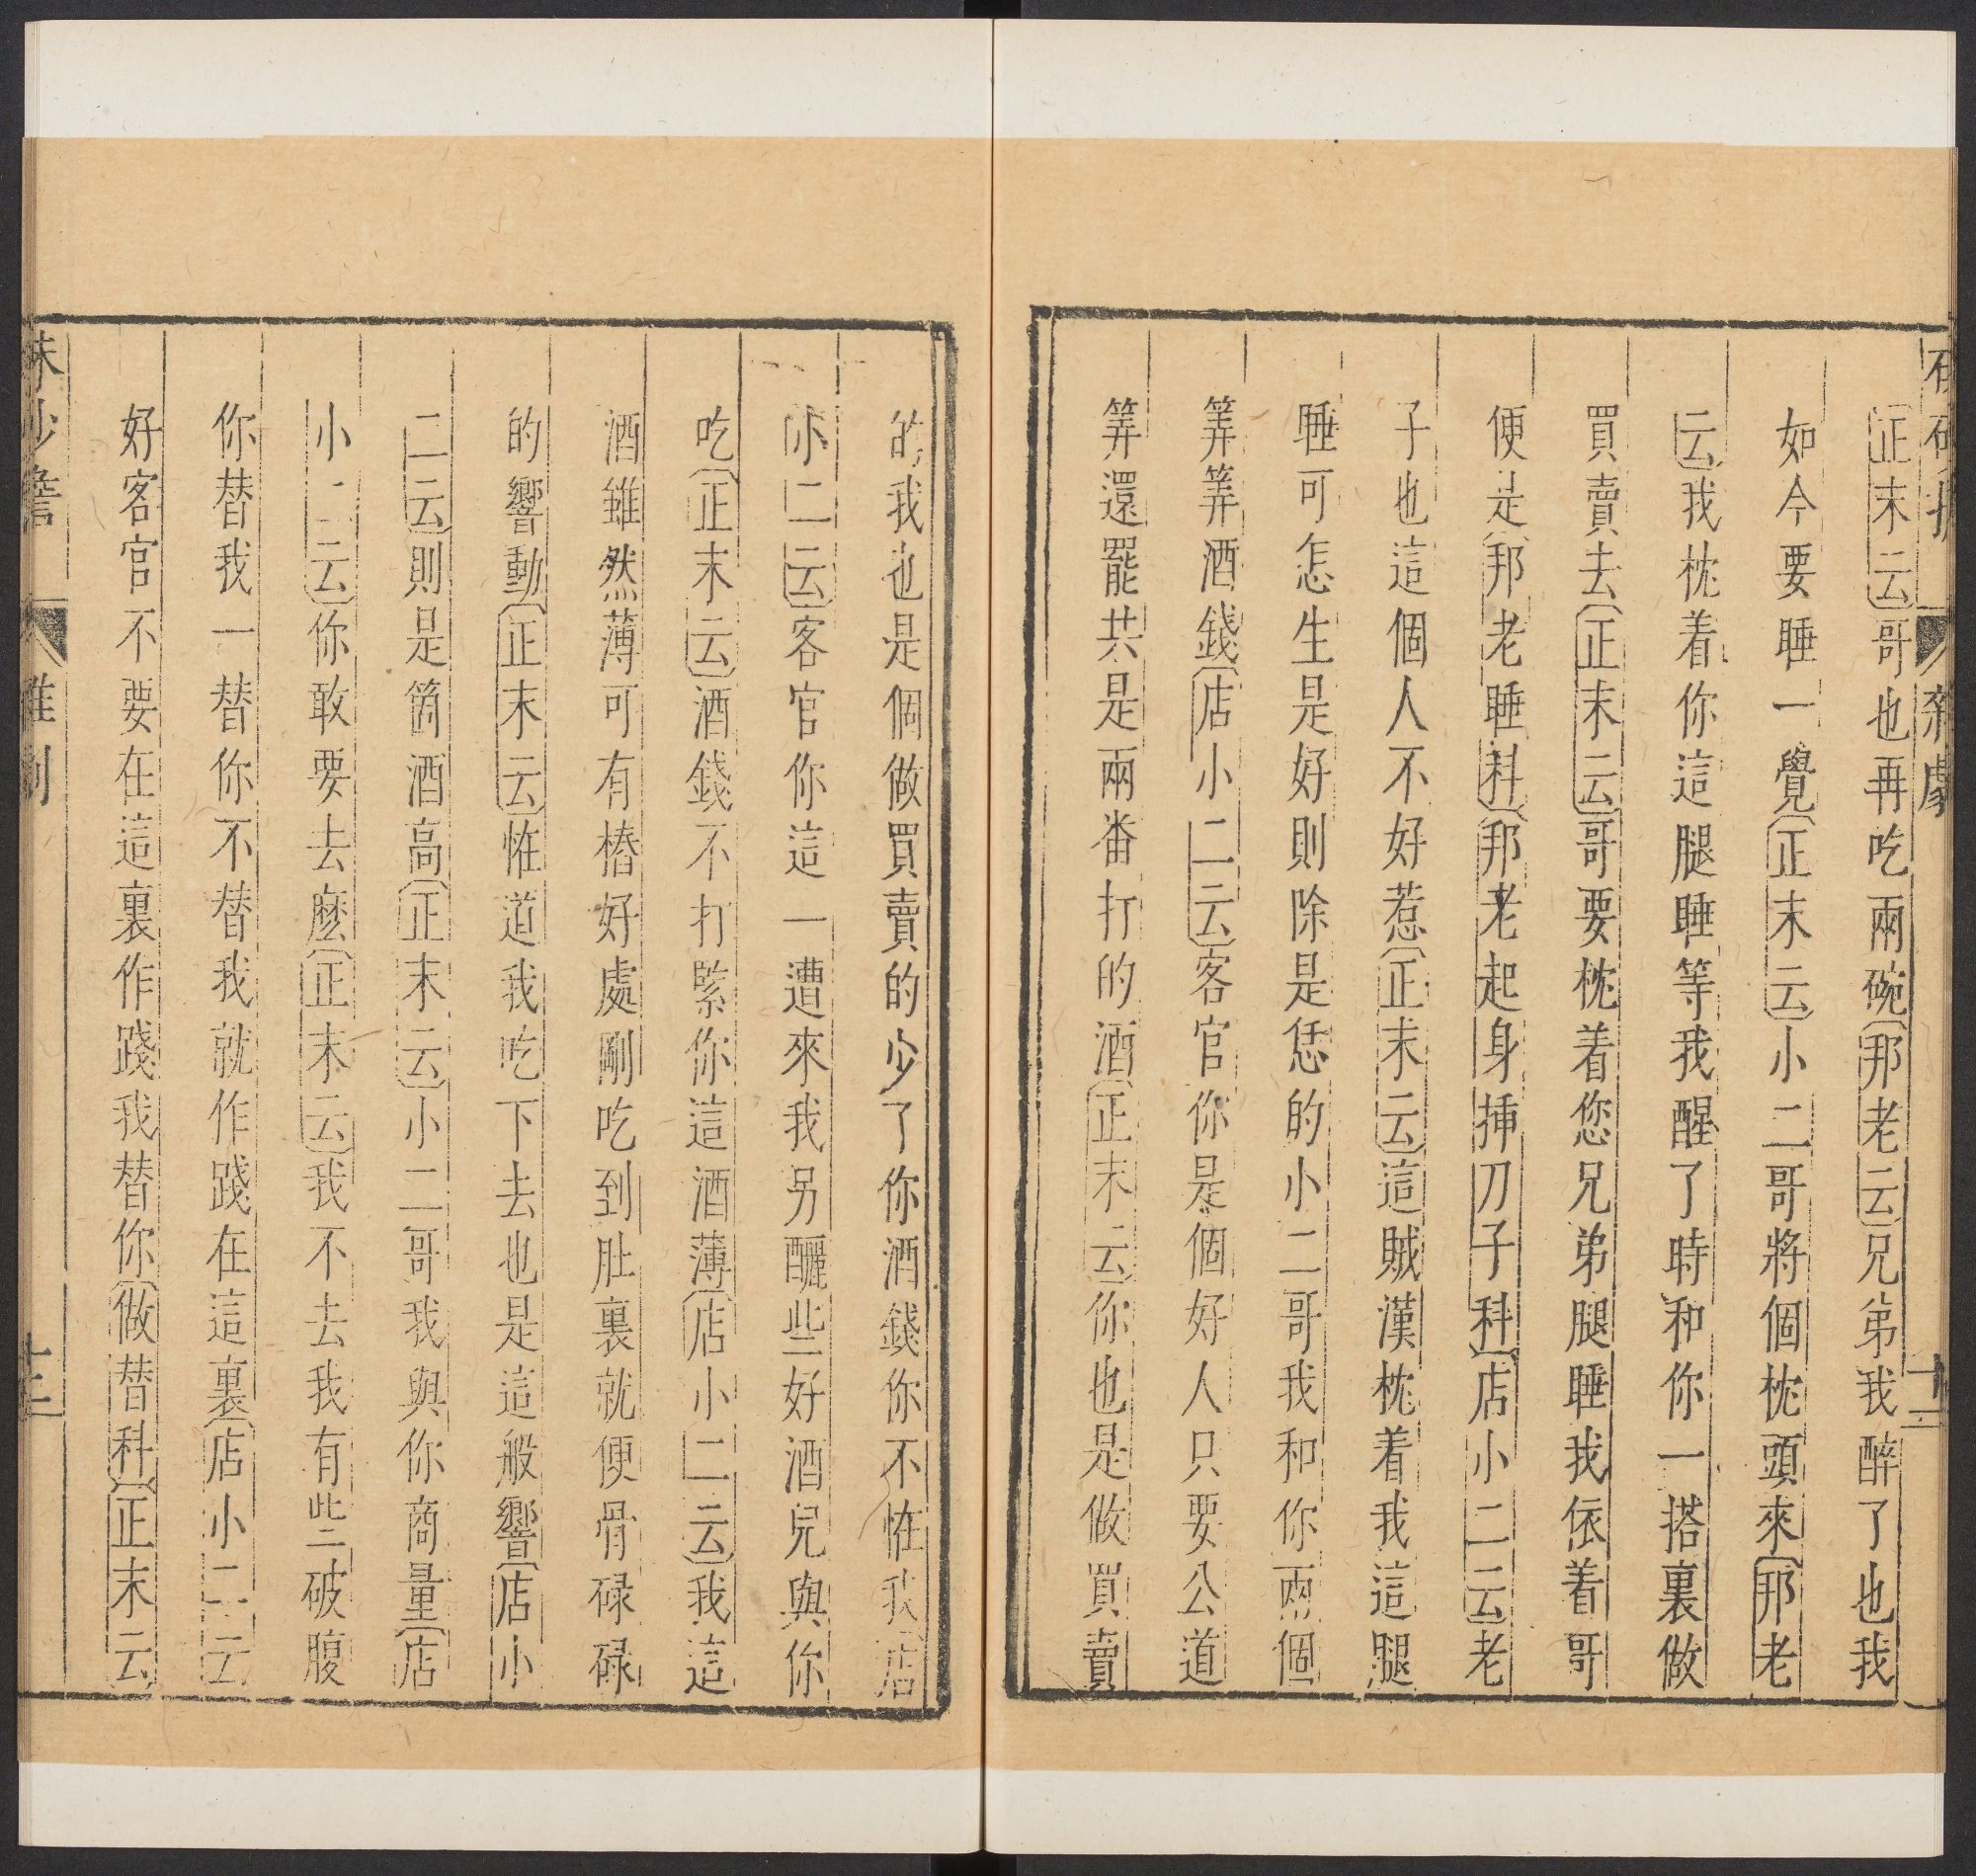 雜劇
十二
正末云哥也再吃兩碗那老云兄弟我醉了也我
如今要睡一覺正末云小二哥將個枕頭來那老
云我枕着你這腿睡等我醒了時和你一搭裏做
買賣去正末云哥要枕着您兄弟腿睡我依着哥
便是那老睡科那老起身揷刀子科店小二云老
子也這個人不好惹正末云這賊漢枕着我這腿
睡可怎生是好則除是恁的小二哥我和你兩個
筭筭酒錢店小二云客官你是個好人只要公道
筭還罷共是兩番打的酒正末云你也是做買賣
的我也是個做買賣的少了你酒錢你不恠我店
小二云客官你這一遭來我另釃些好酒兒與你
吃正末云酒錢不打緊你這酒薄店小二云我這
酒雖然薄可有樁好處剛吃到肚裏就便骨碌碌
的響動正末云恠道我吃下去也是這般響店小
二云則是箇酒高正末云小二哥我與你商量店
小二云你敢要去麽正末云我不去我有些破腹
你替我一替你不替我就作踐在這裏店小二云
好客官不要在這裏作踐我替你做替科正末云